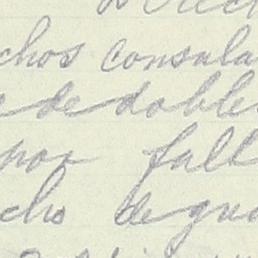 chos consula
e de doble
por fall
cho degua